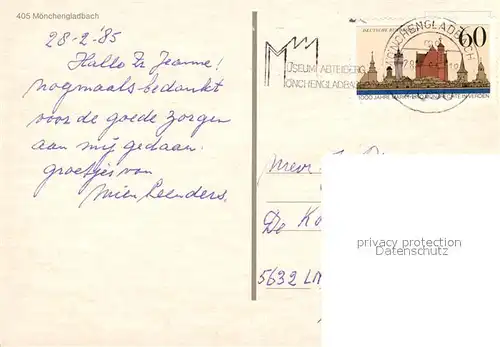 405 Mönchengladbach
28-2-'85
Hallo Zr Jeanne!
nogmaals bedankt
voor de goede zorgen
aan mij gedaan.
groetjes van
Mien Leenders.
DEUTSCHE BUNDES
60
MÖNCHENGLADBACH
MUSEUM ABTEIBERG
MÖNCHENGLADBACH
1000 JAHRE MARKT- MÜNZ VERDEN
Mevr.
De
5632
privacy protection
(Datenschutz)